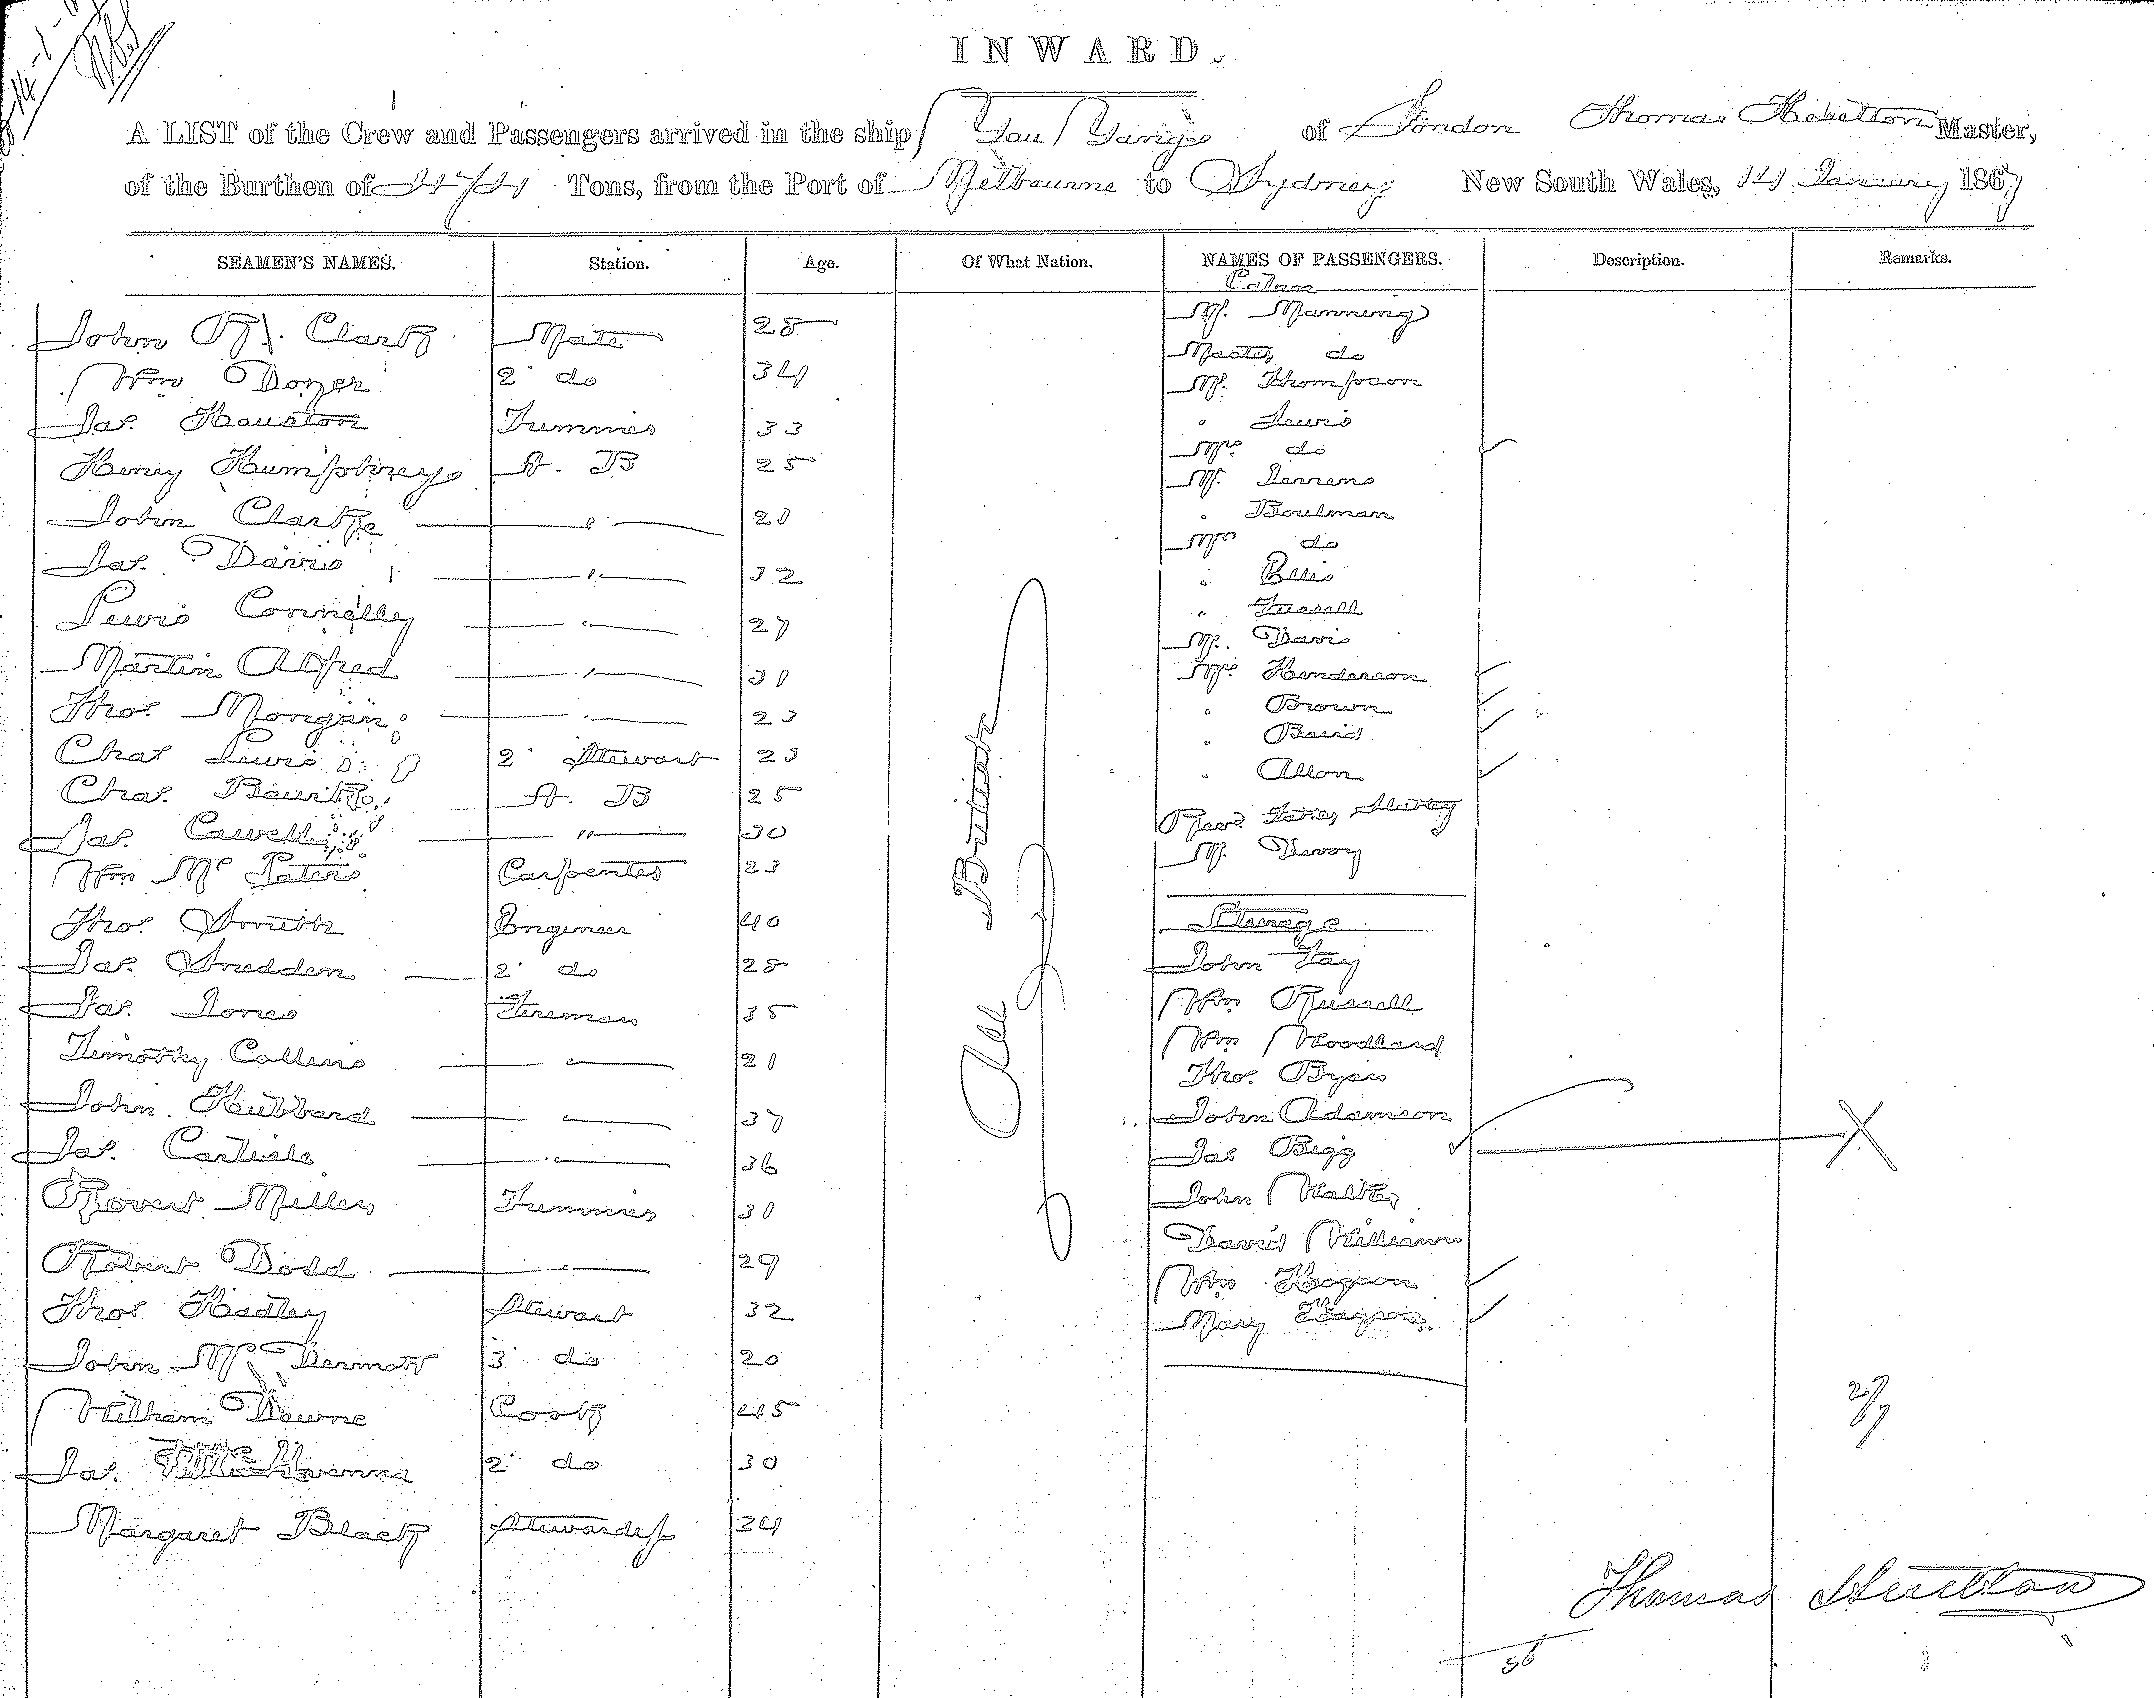 INWARD.
A LIST of the Crew and Passengers arrived in the ship You Yangs of London Thomas Master,
of the Burthen of Tons, from the Port of Melbourne to Sydney New South Wales, 14 January 1867
SEAMEN'S NAMES. Station. Age. Of What Nation. NAMES OF PASSENGERS. Description. Remarks.
Cabin
John Clark Mate 28 Mr. Manning
Wm 2d do 34 Master do
Jas. Houston Trimmer 33 Mr. Thompson
" Lewis
Henry Humphreys A. B 25 Mrs do
John Clarke " 21 Mr.
Jas. Davis " 32 " Boulman
Mrs do
Lewis Connelly " 27 " Ellis
Martin Alfred " 31 " Russell
Mr. Davis
Thos. Morgan " 23 Mrs Henderson
Chas Lewis 2d Stewart 23 " Brown
Chas. Bourke A. B 25 " Baird
Jas. " 30 " Allon
Wm Mc Carpenter 23 Revd.
Mr. Devoy
Thos. Smith Engineer 40 Steerage
Jas. Snedden 2d do 28 John Fay
Jas. Jones Fireman 35 Wm Russell
Timothy Collins " 21 Wm Woodland
Thos. Byers
John Hubbard " 37 John Adamson
Jas. Carlisle " 36 Jas Bigg
Robert Miller Trimmer 31 John Walter
Robert Dodd " 29 David William
Thos Hadley Stewart 32 Wm Hogson
John Mc Dermott 3d do 20 Mary
William Downe Cook 45 27
Jas. 2d do 30
Margaret Black Stewardess 24
All British
Thomas
56